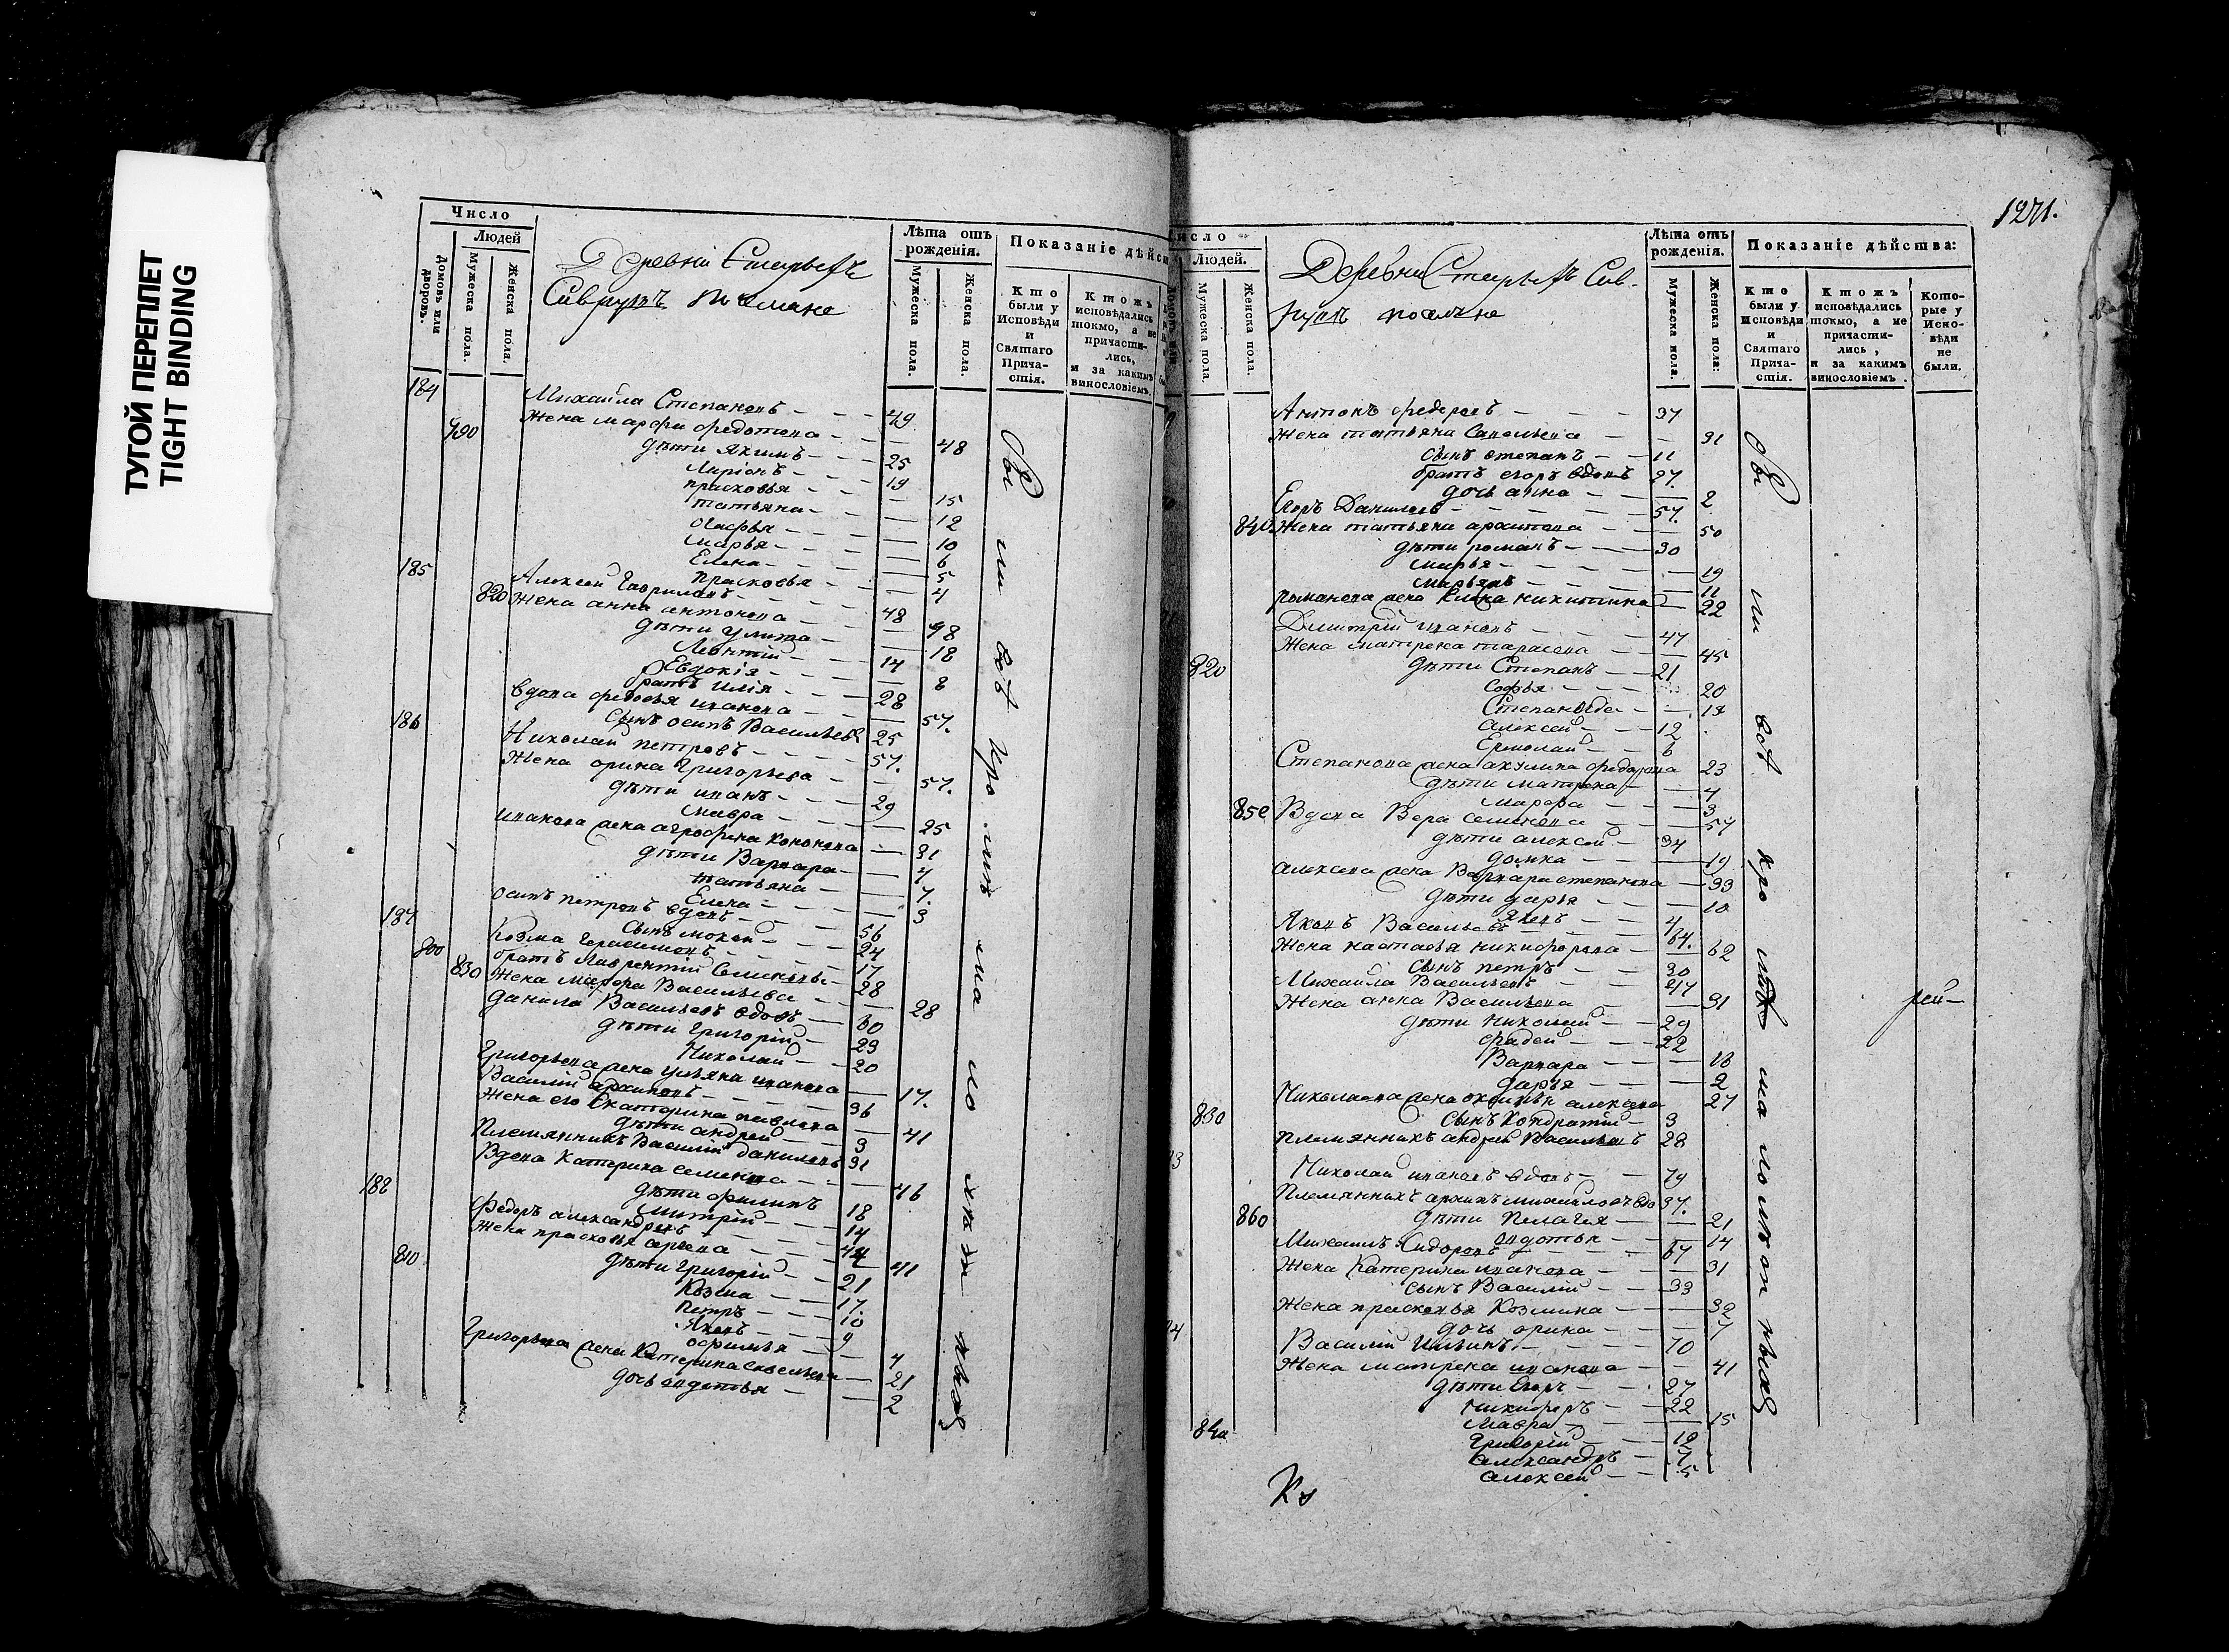 ТУГОЙ ПЕРЕПЛЕТ
TIGHT BINDING
Число
Людей
Домовъ или дворовъ.
Мужеска пола.
Женска пола.
Деревни Старыхъ
Лѣта отъ рожденія.
Мужеска пола.
Женска пола.
Показаніе дѣйст
Кто были у Исповѣди и Святаго Прича-стія.
Ктожъ исповѣдались токмо, а не причасти-лись, и за какимъ винословіемъ.
184
Михайла Степановъ 49
790 Жена марфа федотова 48
дѣти Якимъ 25
Ларіонъ 19
прасковья 15
татьяна 12
10
марья 6
Елена 5
прасковья 4
185 Алексей Гавриловъ 48
820 Жена анна антонова 48
дѣти улита 18
Леонтій 14
Евдокія 8
братъ илія 28
вдова федосья иванова 57.
сынъ осипъ Васильевъ 25
186 Николай петровъ 57.
Жена орина григорьева 57.
дѣти иванъ 29
мавра 25
иванова жена агрофена Кононова 31
дѣти Варвара 7
татьяна 7.
Елена 3
осипъ петровъ вдовъ 56
сынъ мокей 24
187 Козма Герасимовъ 17
800 братъ Лаврентій Семеновъ 28
830 Жена марфа Васильева 28
данила Васильевъ вдовъ 60
дѣти григорій 23
Николай 20
Григорьева жена ульяна иванова 17.
Василій архиповъ 36
Жена его Екатерина павлова 41
дѣти андрей 3
Племянникъ Василій даниловъ 31
Вдова Катерина семенова 46
дѣти филипъ 18
митрій 14
188 Федоръ александровъ 44
Жена прасковья сергеева 41
810 дѣти григорій 21
Козма 17.
петръ 10
Яковъ 9
офимья 4
Григорьева жена Катерина савельева 21
дочь авдотья 2
1271.
число
Людей.
Мужеска пола.
Женска пола.
Деревни Старыхъ Сав-
Лѣта отъ рожденія.
Мужеска пола.
Женска пола:
Показаніе дѣйства:
Кто были у Исповѣди и Святаго Прича-стія.
Ктожъ исповѣдались токмо, а не причасти-лись, и за какимъ винословіемъ.
Кото-рые у Испо-вѣди не были.
Антонъ федоровъ 37
Жена татьяна Савельева 31
сынъ степанъ 11
братъ егоръ вдовъ 27.
дочь анна 2
Егоръ Даниловъ 57.
840 Жена татьяна архипова 50
дѣти романъ 30
марья 19
11
романова жена Елена никитина 22
Димитрій ивановъ 47
Жена матрена тарасова 45
820 дѣти Степанъ 21
Софья 20
Степанида 17
алексей 12
Ермолай 6
Степанова жена акулина федорова 23
дѣти матрена 4
марфа 3
850 Вдова Вера семенова 57
дѣти алексей 34
домна 19
алексева жена Варвара степанова 33
дѣти дарья 10
Яковъ 4
Яковъ Васильевъ 64.
Жена настасья никифорова 62
сынъ петръ 30
Михайла Васильевъ 47
Жена анна Васильева 31
дѣти Николай 29
фадей 22
Варвара 18
дарья 2
Николаева жена алексева 27
830 сынъ Кондратій 3
племянникъ андрей Васильевъ 28
Николай ивановъ вдовъ 79
Племянникъ архипъ михайловъ вдо 37.
860 дѣти Пелагея 21
авдотья 14
Михаилъ Сидоровъ 67
Жена Катерина иванова 31
сынъ Василій 33
Жена прасковья Козмина 32
дочь орина 7
Василій Ильинъ 70
Жена матрена иванова 41
дѣти Егоръ 27
никифоръ 22
мавра 15
840 григорій 12
александръ 7
алексей 5